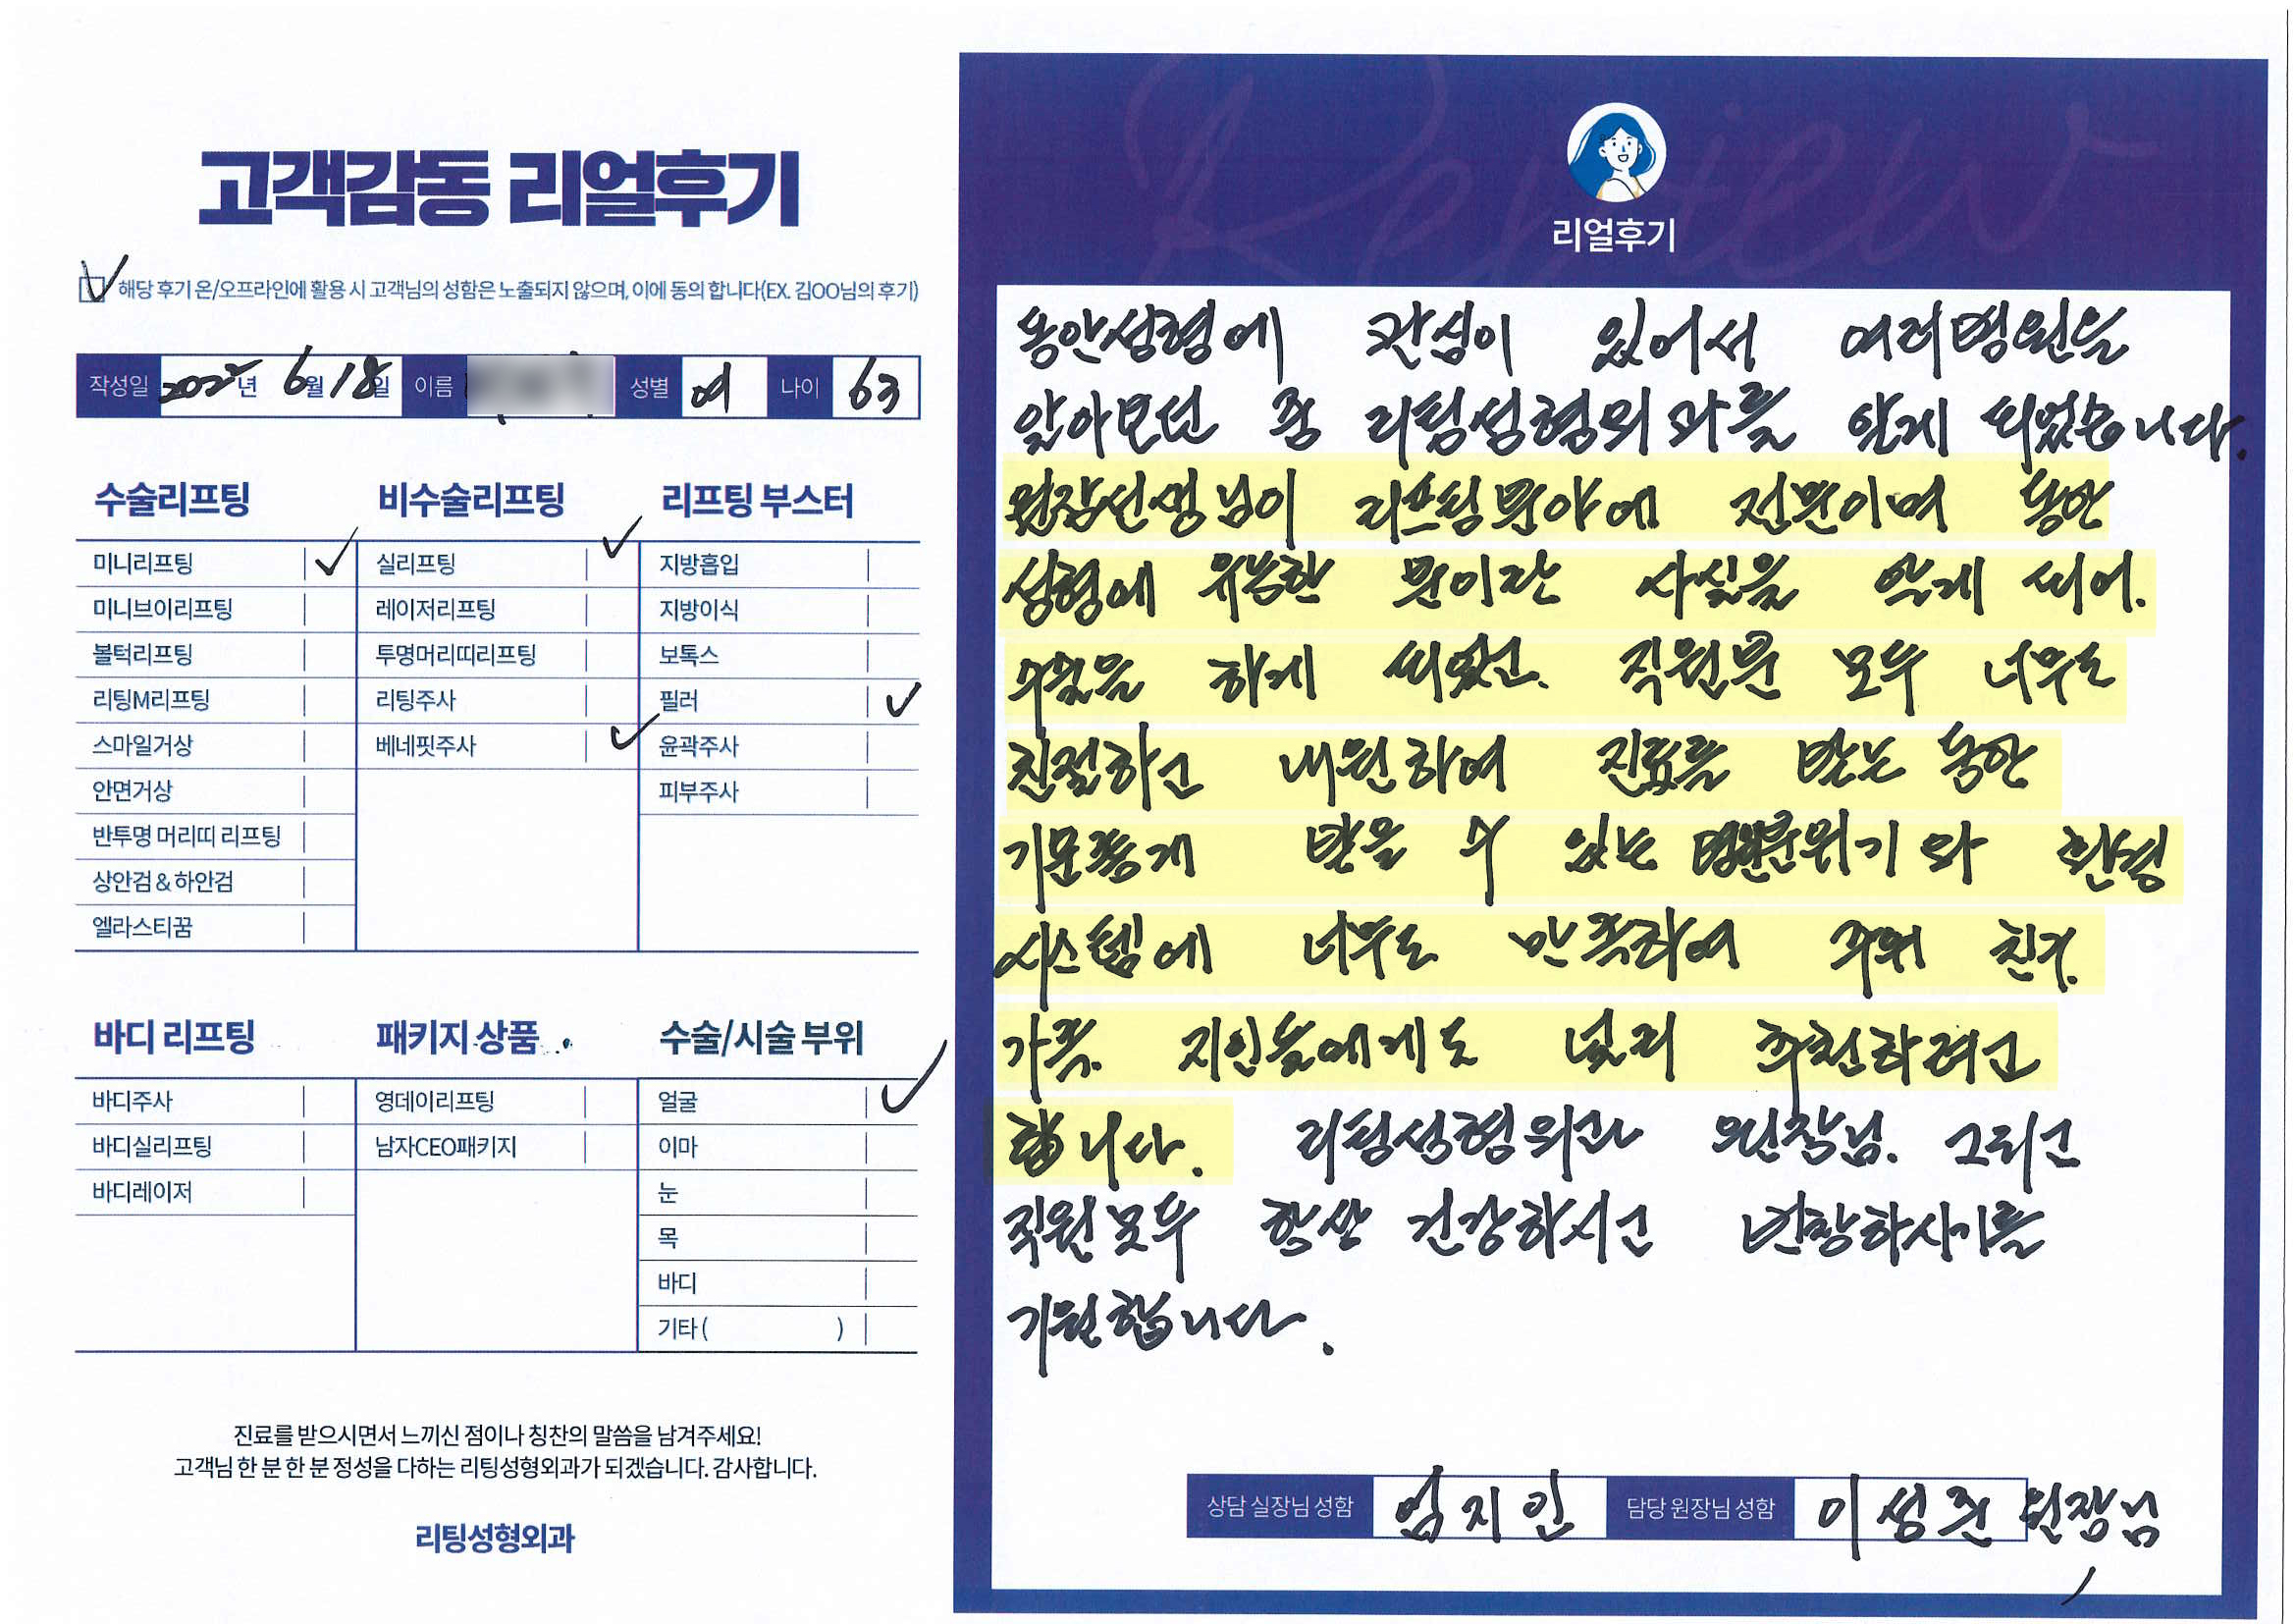 고객감동 리얼후기
해당 후기 온/오프라인에 활용 시 고객님의 성함은 노출되지 않으며, 이에 동의 합니다(EX. 김OO님의 후기)
작성일 2022년 6월 18일 이름 성별 여 나이 63
수술리프팅
미니리프팅
미니브이리프팅
볼턱리프팅
리팅M리프팅
스마일거상
안면거상
반투명 머리띠 리프팅
상안검 & 하안검
엘라스티꿈
비수술리프팅
실리프팅
레이저리프팅
투명머리띠리프팅
리팅주사
베네핏주사
리프팅 부스터
지방흡입
지방이식
보톡스
필러
윤곽주사
피부주사
바디 리프팅
바디주사
바디실리프팅
바디레이저
패키지 상품
영데이리프팅
남자CEO패키지
수술/시술 부위
얼굴
이마
눈
목
바디
기타 ( )
진료를 받으시면서 느끼신 점이나 칭찬의 말씀을 남겨주세요!
고객님 한 분 한 분 정성을 다하는 리팅성형외과가 되겠습니다. 감사합니다.
리팅성형외과
Review
리얼후기
동안성형에 관심이 있어서 여러병원을
알아보던 중 리팅성형외과를 알게 되었습니다.
원장선생님이 리프팅분야에 전문이며 동안
성형에 유능한 분이란 사실을 알게 되어.
수술을 하게 되었고. 직원분 모두 너무도
친절하고 내원하여 진료를 받는 동안
기분좋게 받을 수 있는 병원분위기와 환경
시스템에 너무도 만족하여 주위 친구.
가족. 지인들에게도 널리 추천하려고
합니다. 리팅성형외과 원장님. 그리고
직원모두 항상 건강하시고 번창하시기를
기원합니다.
상담 실장님 성함 엄지인 담당 원장님 성함 이성준 원장님